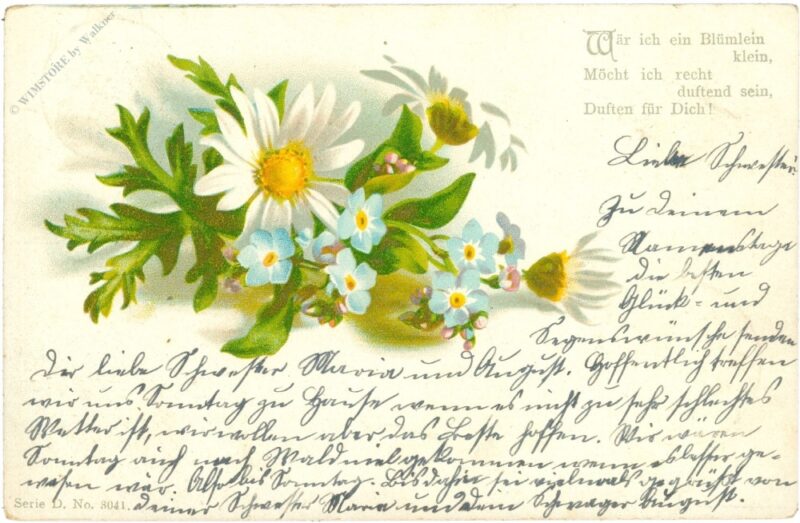 © WIMSTORE by Walkner
Wär ich ein Blümlein
klein,
Möcht ich recht
duftend sein,
Duften für Dich!
Liebe Schwester!
Zu Deinem
Namenstage
die besten
Glück- und
Segenswünsche senden
Dir liebe Schwester Maria und August. Hoffentlich treffen
wir uns Sonntag zu Hause wenn es nicht zu sehr schlechtes
Wetter ist, wir wollen aber das Beste hoffen. Wir wären
Sonntag auch nach gekommen wenn es besser ge-
wesen wär. Also bis Sonntag. Bis dahin sei vielmals gegrüßt von
Serie D. No. 8041. deiner Schwester Maria und dem Schwager August.